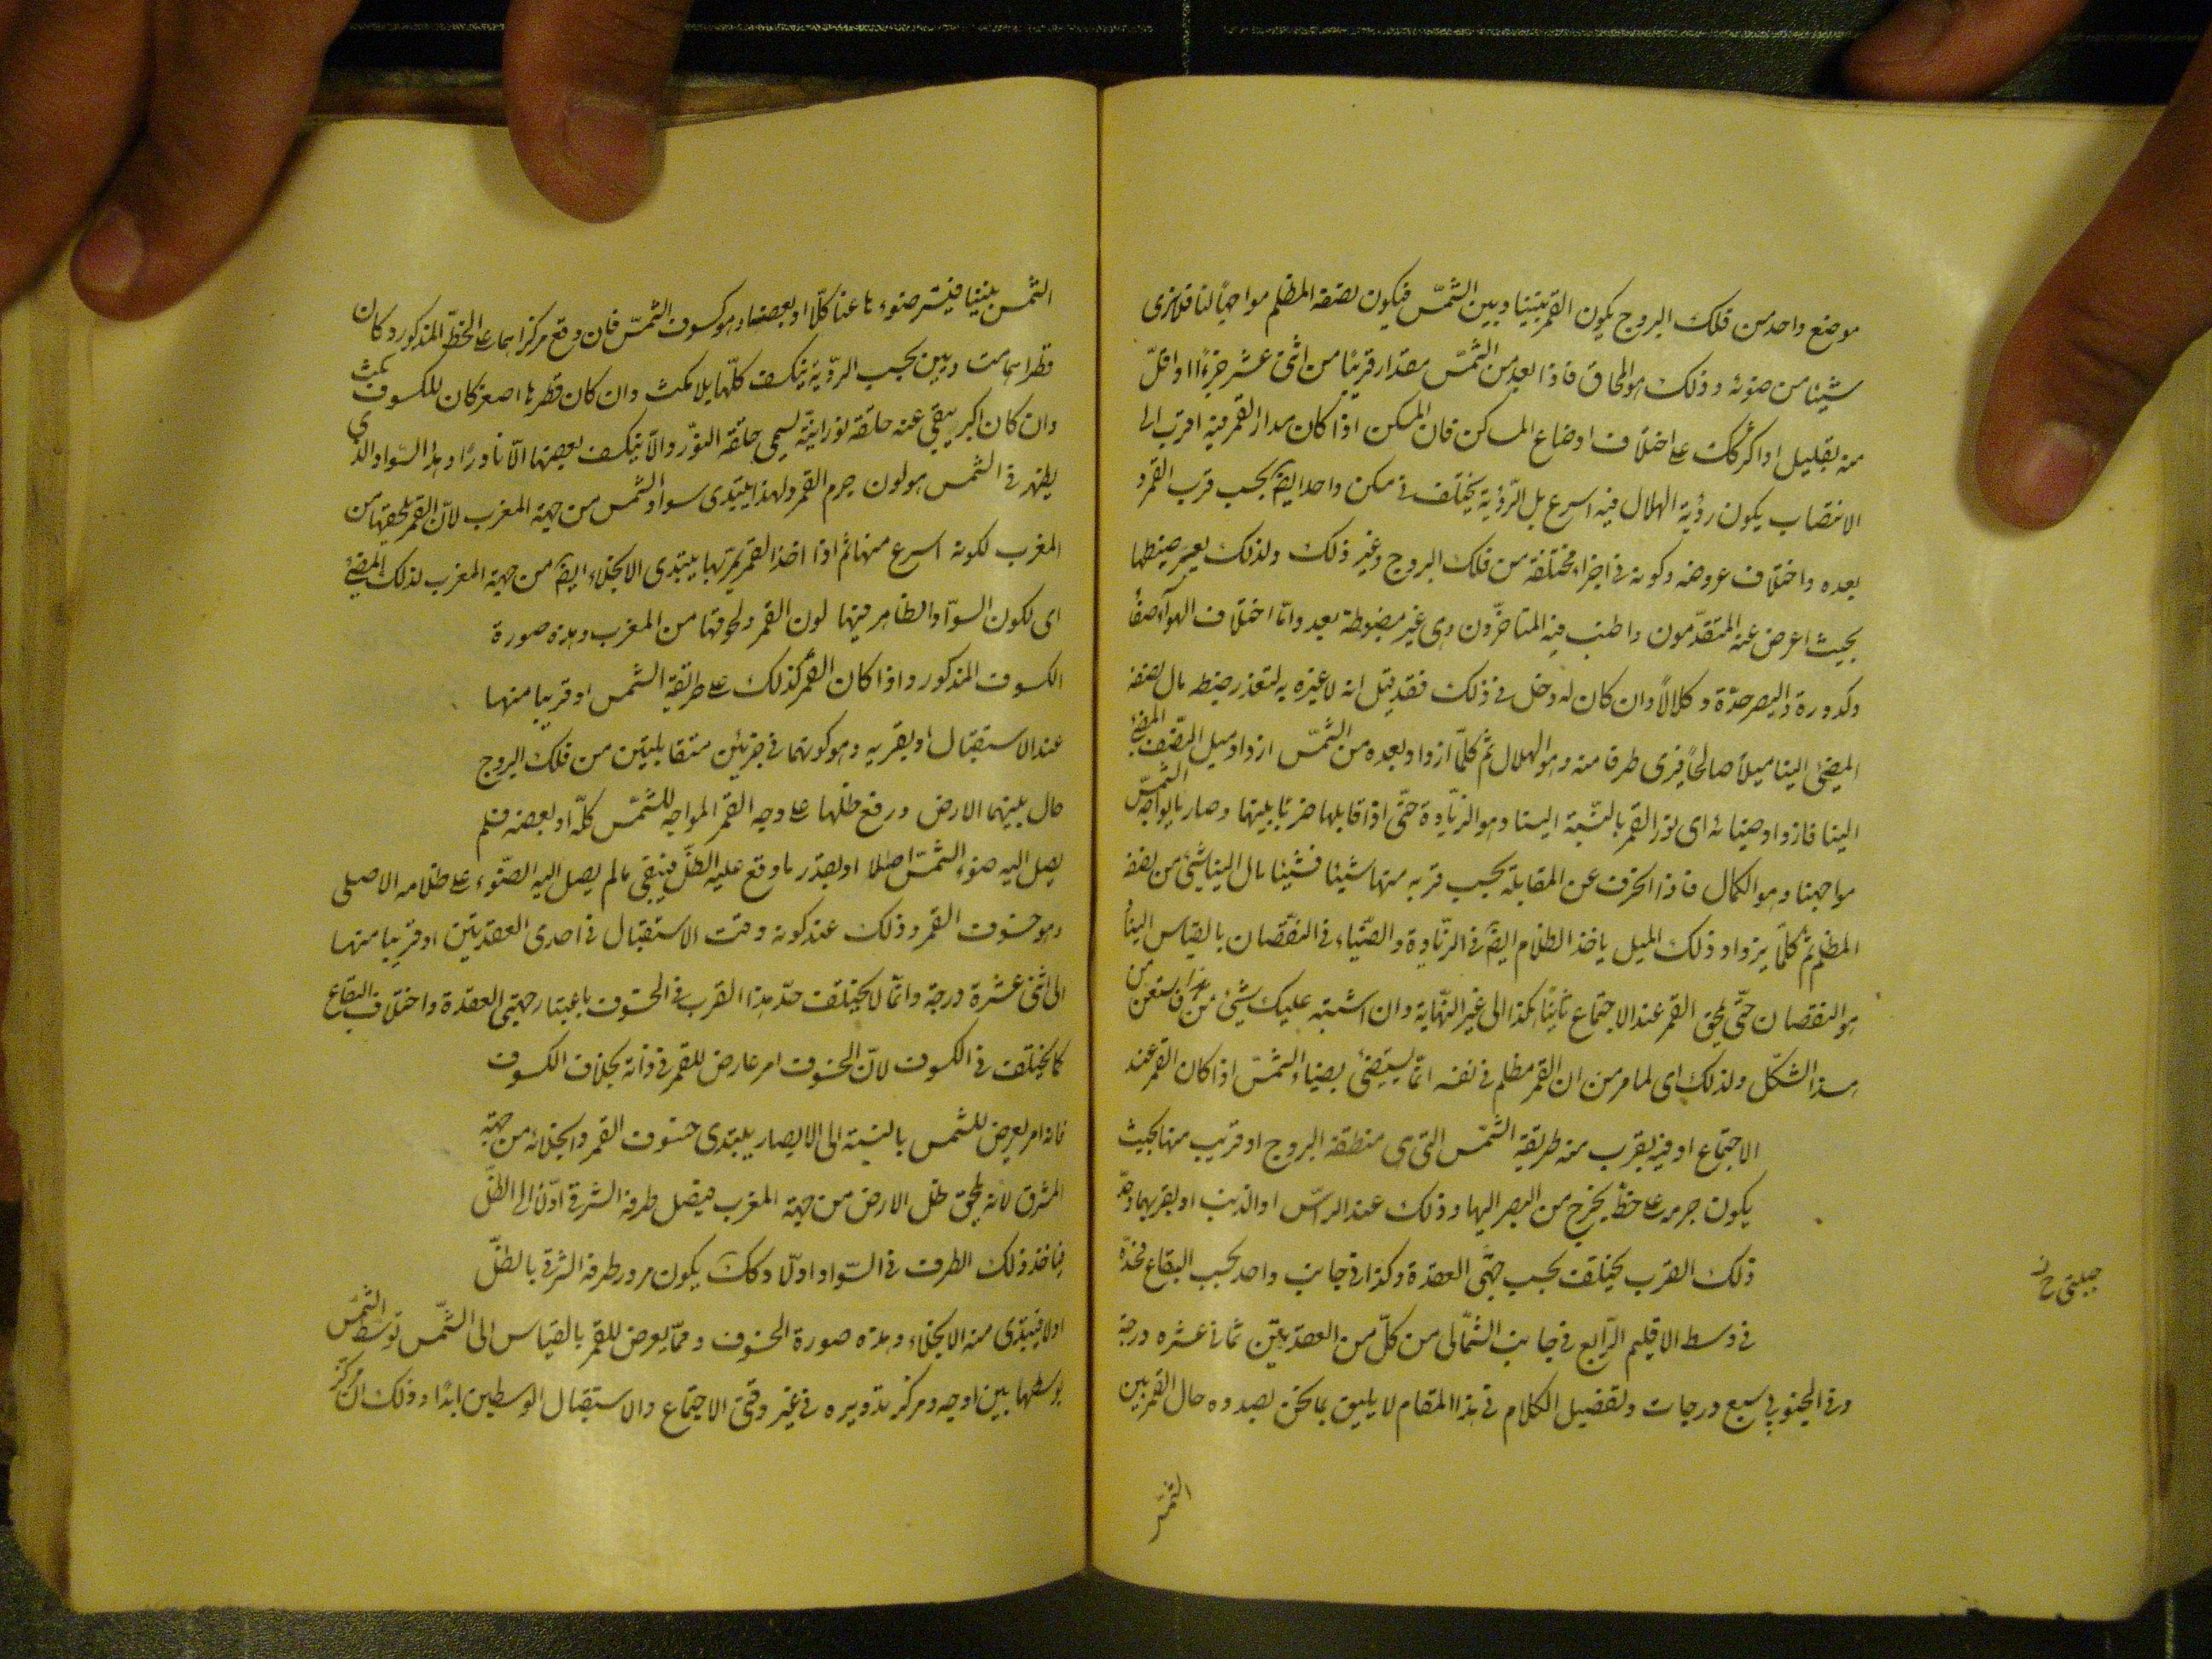 موضع واحد من فلك البروج يكون القمر بيننا وبين الشمس فيكون نصفه المظلم مواجها لنا فلا نرى
شيئا من ضوئه وذلك هو المحاق فاذا بعد من الشمس مقدار قريبا من اثنى عشر جزءا او اقل
منه بقليل او اكثر كك على اختلاف اوضاع المساكن فان المسكن اذا كان مدار القمر فيه اقرب الى
الانتصاب يكون رؤية الهلال فيه اسرع بل الرؤية يختلف فى مسكن واحد ايضا بحسب قرب القمر و
بعده واختلاف عروضه وكونه فى اجزاء مختلفة من فلك البروج وغير ذلك ولذلك يعسر ضبطها
بحيث اعرض عنه المتقدمون واطنب فيه المتاخرون وهى غير مضبوطة بعد واما اختلاف الهواء صفاء
وكدورة والبصر حدة وكلالا وان كان له دخل فى ذلك فقد قيل انه لا عبرة به لتعذر ضبطه مال نصفه
المضئ الينا ميلا صالحا فيرى طرفا منه وهو الهلال ثم كلما ازداد بعده من الشمس ازداد ميل النصف المضئ
الينا فازداد ضيائه اى نور القمر بالنسبة الينا وهو الزيادة حتى اذا قابلها صرنا بينهما وصار ما يواجه الشمس
مواجهنا وهو الكمال فاذا انحرف عن المقابلة بحسب قربه منها شيئا فشيئا مال الينا شئ من نصفه
المظلم ثم كلما يزداد ذلك الميل ياخذ الظلام ايضا فى الزيادة والضياء فى النقصان بالقياس الينا
هو النقصان حتى يمحق القمر عند الاجتماع ثانيا هكذا الى غير النهاية وان اشتبه عليك شئ من هذا فاستعن من
هذا الشكل ولذلك اى لما مر من ان القمر مظلم فى نفسه انما يستضئ بضياء الشمس اذا كان القمر عند
الاجتماع او فيه بقرب منه طريقة الشمس التى هى منطقة البروج او قريب منها بحيث
يكون جرمه على خط يخرج من البصر اليها وذلك عند الراس او الذنب او بقربهما وحد
ذلك القرب يختلف بحسب جهتى العقدة وكذا فى جانب واحد بحسب البقاع فحده
فى وسط الاقليم الرابع فى جانب الشمالى من كل من العقدتين ثمانى عشره درجة
وفى الجنوبى سبع درجات وتفصيل الكلام فى هذا المقام لا يليق بما نحن بصدده حال القمر بين
جهتى خ ل
الشمس
الشمس بيننا فيستر ضوءها عنا كلا او بعضا وهو كسوف الشمس فان وقع مركزاهما على الخط المذكور وكان
قطراهما متساويين بحسب الرؤية ينكسف كلها بلا مكث وان كان قطرها اصغر كان للكسوف مكث
وان كان اكبر يبقى عنه حلقة نورانية يسمى حلقة النور والا ينكسف بعضها الا نادرا وهذا السواد الذى
يظهر فى الشمس هو لون جرم القمر ولهذا يبتدى سواد الشمس من جهة المغرب لان القمر يلحقها من
المغرب لكونه اسرع منها ثم اذا اخذ القمر يمر بها يبتدى الانجلاء ايضا من جهة المغرب لذلك المضئ
اى لكون السواد الظاهر فيها لون القمر ولحوقها من المغرب وهذه صورة
الكسوف المذكور واذا كان القمر كذلك على طريقة الشمس او قريبا منها
عند الاستقبال او بقربه وهو كونهما فى جزئين متقابلين من فلك البروج
حال بينهما الارض ورفع ظلها على وجه القمر المواجه للشمس كله او بعضه فلم
يصل اليه ضوء الشمس اصلا او بقدر ما وقع عليه الظل فيبقى ما لم يصل اليه الضوء على ظلامه الاصلى
وهو خسوف القمر وذلك عند كونه وقت الاستقبال فى احدى العقدتين او قريبا منها
الى اثنى عشرة درجة وانما لا يختلف حد هذا القرب فى الخسوف باعتبار جهتى العقدة واختلاف البقاع
كما يختلف فى الكسوف لان الخسوف امر عارض للقمر فى ذاته بخلاف الكسوف
فانه امر يعرض للشمس بالنسبة الى الابصار يبتدى خسوف القمر وانجلائه من جهة
المشرق لانه يلحق ظل الارض من جهة المغرب فيصل طرفه الشرقى اولا الى الظل
فياخذ ذلك الطرف فى السواد اولا وكك يكون مرور طرفه الشرقى بالظل
اولا فيبتدى منه الانجلاء وهذه صورة الخسوف ومما يعرض للقمر بالقياس الى الشمس توسط الشمس
بوسطها بين اوجه ومركز تدويره فى غير وقتى الاجتماع والاستقبال الوسطين ابدا وذلك ان مركز